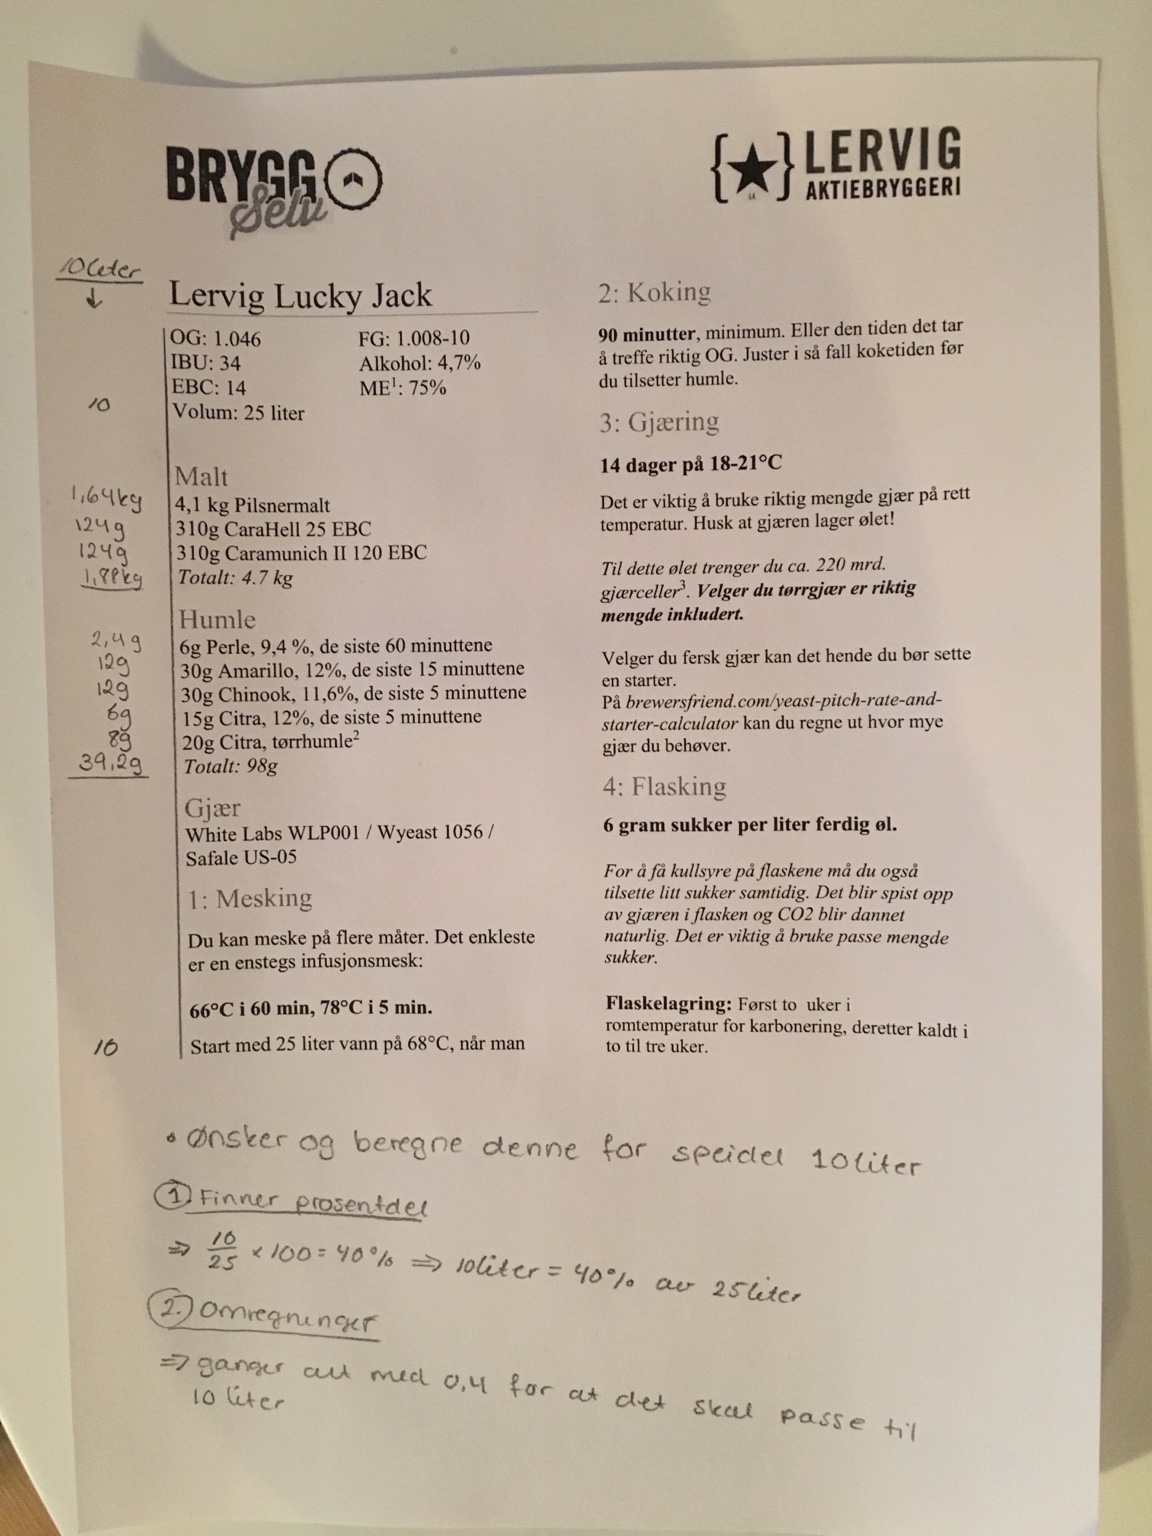 BRYGG
Selv
{★} LERVIG
AKTIEBRYGGERI
10 liter
↓
Lervig Lucky Jack
OG: 1.046 FG: 1.008-10
IBU: 34 Alkohol: 4,7%
EBC: 14 ME¹: 75%
10 Volum: 25 liter
Malt
1,64kg 4,1 kg Pilsnermalt
124g 310g CaraHell 25 EBC
124g 310g Caramunich II 120 EBC
1,88kg Totalt: 4.7 kg
Humle
2,4g 6g Perle, 9,4 %, de siste 60 minuttene
12g 30g Amarillo, 12%, de siste 15 minuttene
12g 30g Chinook, 11,6%, de siste 5 minuttene
6g 15g Citra, 12%, de siste 5 minuttene
8g 20g Citra, tørrhumle²
39,2g Totalt: 98g
Gjær
White Labs WLP001 / Wyeast 1056 /
Safale US-05
1: Mesking
Du kan meske på flere måter. Det enkleste
er en enstegs infusjonsmesk:
66°C i 60 min, 78°C i 5 min.
10 Start med 25 liter vann på 68°C, når man
2: Koking
90 minutter, minimum. Eller den tiden det tar
å treffe riktig OG. Juster i så fall koketiden før
du tilsetter humle.
3: Gjæring
14 dager på 18-21°C
Det er viktig å bruke riktig mengde gjær på rett
temperatur. Husk at gjæren lager ølet!
Til dette ølet trenger du ca. 220 mrd.
gjærceller³. Velger du tørrgjær er riktig
mengde inkludert.
Velger du fersk gjær kan det hende du bør sette
en starter.
På brewersfriend.com/yeast-pitch-rate-and-
starter-calculator kan du regne ut hvor mye
gjær du behøver.
4: Flasking
6 gram sukker per liter ferdig øl.
For å få kullsyre på flaskene må du også
tilsette litt sukker samtidig. Det blir spist opp
av gjæren i flasken og CO2 blir dannet
naturlig. Det er viktig å bruke passe mengde
sukker.
Flaskelagring: Først to uker i
romtemperatur for karbonering, deretter kaldt i
to til tre uker.
• Ønsker og beregne denne for speidel 10 liter
1) Finner prosentdel
⇒ 10/25 × 100 = 40% ⇒ 10 liter = 40% av 25 liter
2.) Omregninger
⇒ ganger alt med 0,4 for at det skal passe til
10 liter